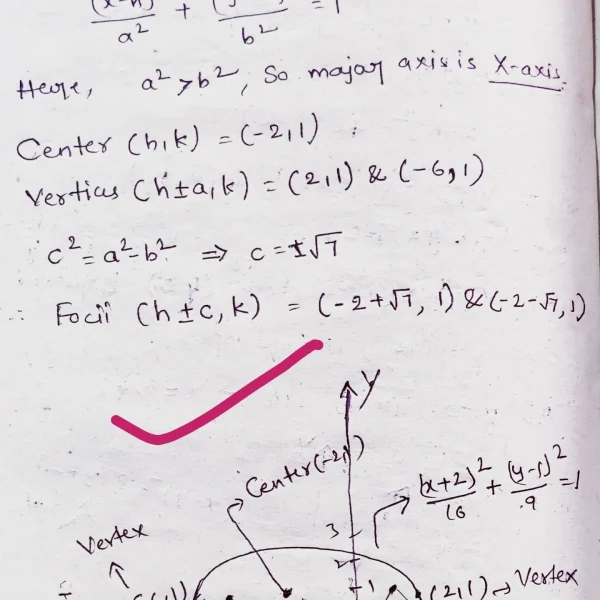 a² + b² = 1
Here, a² > b², So major axis is X-axis.
Center (h,k) = (-2,1)
Verticus (h±a,k) = (2,1) & (-6,1)
c² = a²-b² ⇒ c = ±√7
∴ Focii (h±c,k) = (-2+√7, 1) & (-2-√7, 1)
y
Center(-2,1)
(x+2)²/16 + (y-1)²/9 = 1
Vertex
3
2
1
(2,1) → Vertex